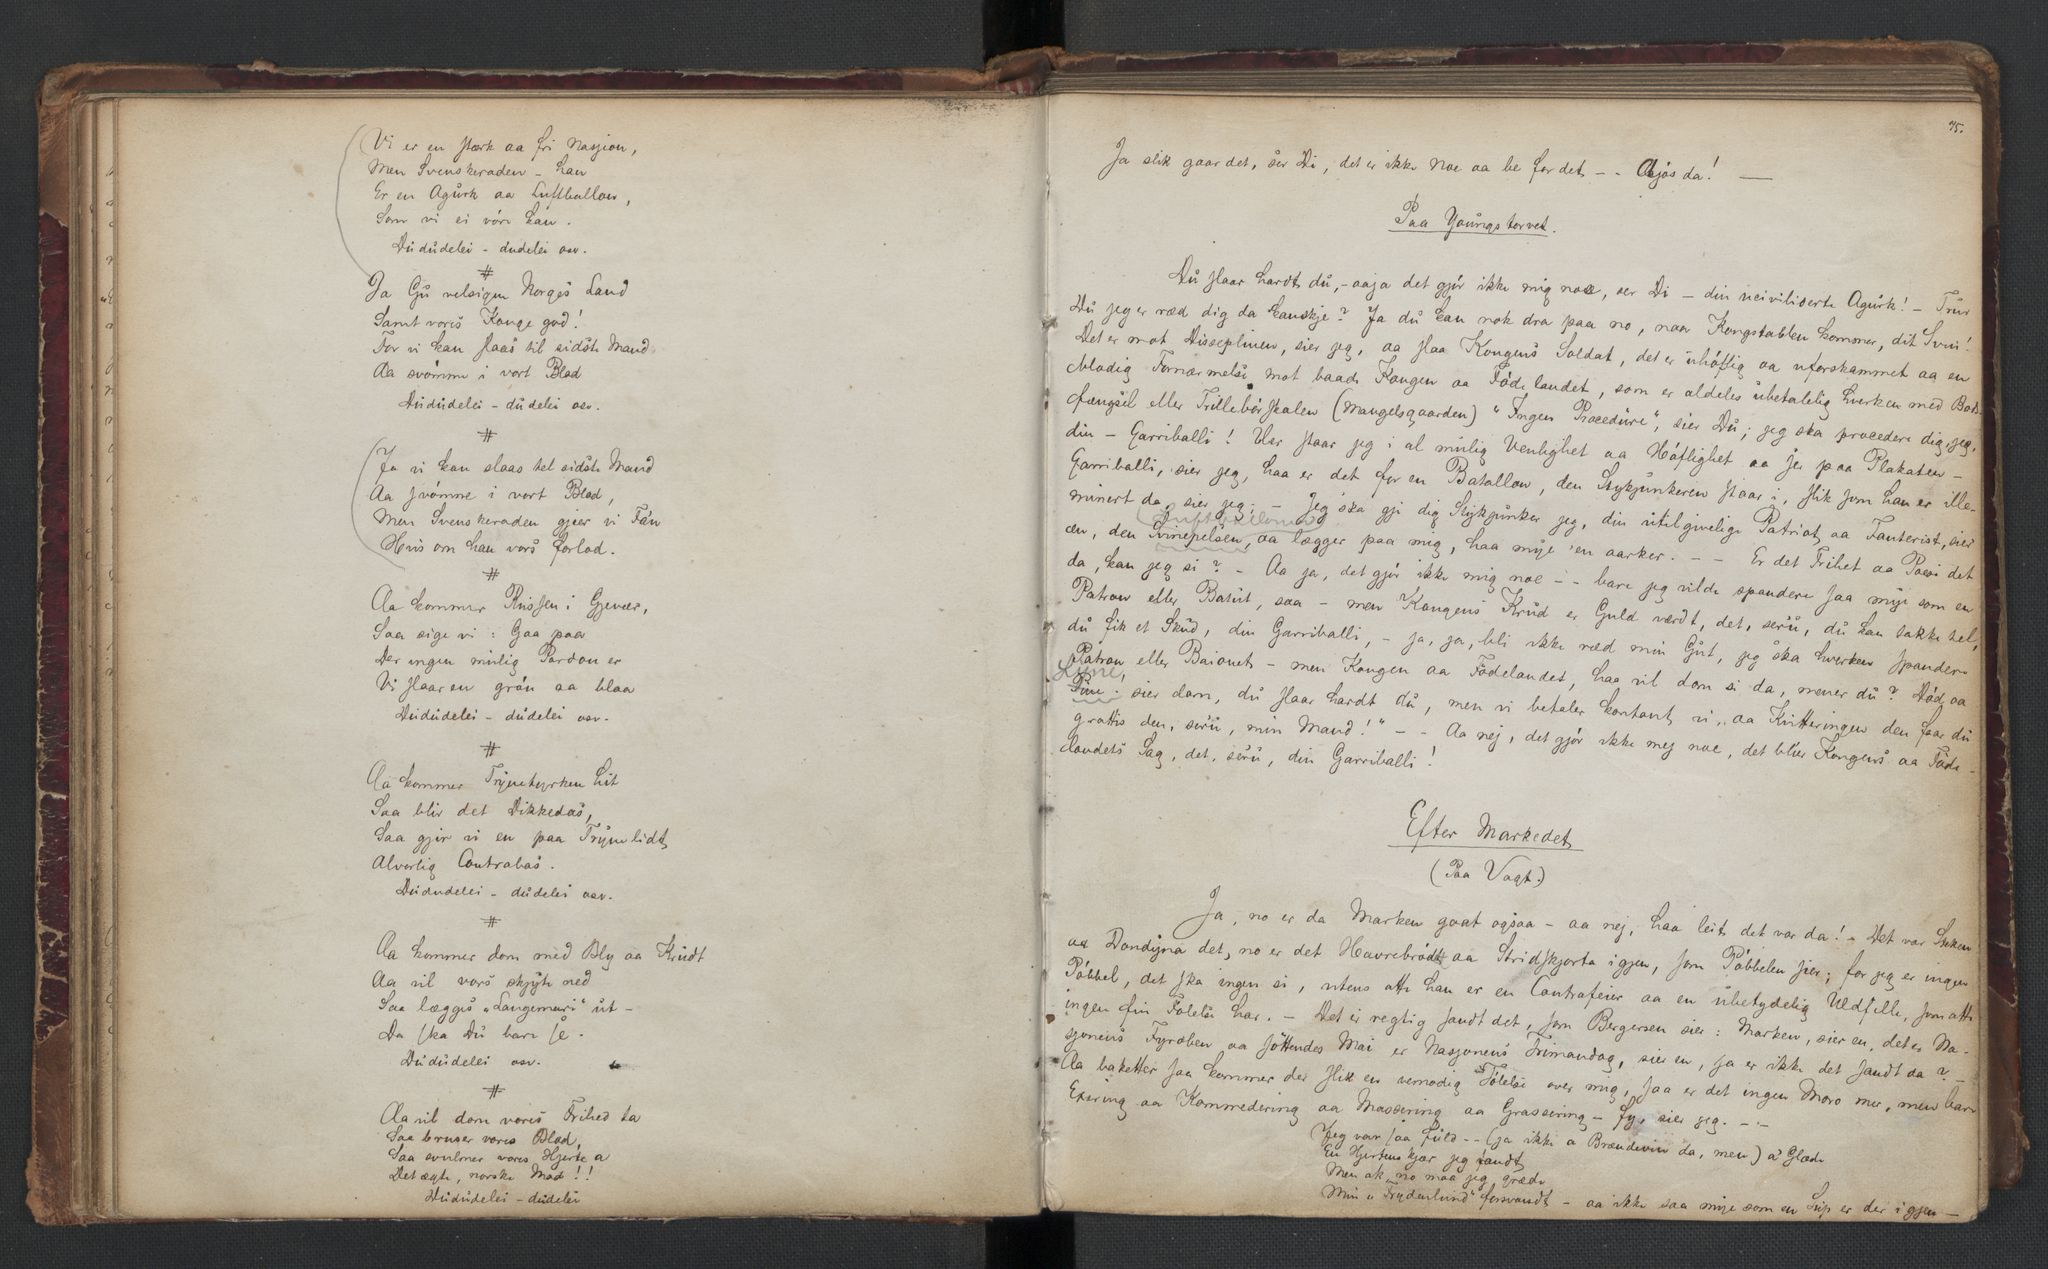 Vi er en stærk aa fri Nasjion,
Men Svenskeraden - han
Er en Agurk aa Luftballon,
Som vi ei vóre kan.
Dududelei - dudelei osv.
#
Ja Gu velsigne Norges Land
Samt voris Konge god!
For vi kan slaas til sidste Mand
Aa svómme i vort Blod
Dududelei - dudelei osv.
#
Ja vi kan slaas tel sidste Mand
Aa svómme i vort Blod,
Men Svenskeraden gjier vi Fán
Hvis om han vors forlod.
#
Aa kommer Russen i Gjevær,
Saa sige vi: Gaa paa
Der ingen mulig Pardon er
Vi slaar en grón aa blaa
Dududelei - dudelei osv.
#
Aa kommer Trynetyrken hit
Saa blir det Dikkedas,
Saa gjir vi en paa Tryne lidt
Alverlig Contrabas.
Dududelei - dudelei osv.
#
Aa kommer dom med Bly aa Krudt
Aa vil vors skjyte ned
Saa lægges "Langemari" ut -
Da ska Du bare se.
Dududelei osv.
#
Aa vil dom voris Frihed ta
Saa bruger voris Blod,
Saa svulmer voris Hjerte a
Det ægte, norske Mod!!
Dududelei - dudelei
75.
Ja slik gaar det, ser Di, det er ikke noe aa be for det -- Ajøs da! —
Paa Youngstorvet.
Du slaar hardt du, - aaja det gjór ikke mig noe, ser Di - din uciviliserte Agurk! - Trur
Du jeg er ræd dig da kanskje? Ja du kan nok dra paa no, naar Kongstablen kommer, dit Svin!
Det er mot Dissiplinen, sier jeg, aa slaa Kongens Soldat, det er uhóflig aa uforskammet aa en
blodig Fornærmelse mot baade Kongen aa Fódelandet, som er aldeles ubetalelig hverken med Bods-
fængsel eller Trillebórskolen (Mangelsgaarden) "Ingen Procedure", sier Du; jeg ska procedere dig, jeg,
din - Garriballi! Her staar jeg i al mulig Venlighet aa Hóflighet aa ser paa Plakaten -
Garriballi, sier jeg, haa er det for en Batallon, den Stykjunkeren staar i, slik som han er ille-
minert da, sier jeg; - Jeg ska gji dig Stykjunker jeg, din utilgivelige Patriot aa Fanterist, sier
Luftballonen
en, den Svinepelsen, aa lægger paa mig, haa mye 'en aarker. - - Er det Frihet aa Poesi det
da, kan jeg si? - Aa ja, det gjór ikke mig noe -- bare jeg vilde spandere saa mye som en
Patron eller Batut, saa - men Kongens Krud er Guld værdt, det, seru, du kan takke tel,
du fik et Skud, din Garriballi, - ja, ja, bli ikke ræd min Gut, jeg ska hverken spandere
Patron eller Baionet - men Kongen aa Fódelandet, haa vil dom si da, mener du? Dód aa
Lyne,
Pine: sier dom, du slaar hardt du, men vi betaler kontant vi, aa Kvitteringen den faar du
grattis den, seru, min Mand!" - - Aa nej, det gjór ikke mej noe, det blier Kongens aa Fóde-
landets Sag, det, seru, din Garriballi!
Efter Markedet
(Paa Vagt.)
Ja, no er da Marken goat ogsaa - aa nej, haa leit det var da! - Det var Steken
aa Dondyna det, no er det Havrebródt aa Stridskjorta igjen, som Póbbelen sier; for jeg er ingen
Póbbel, det ska ingen si, utens atte han er en Contrafeier aa en ubetydelig Uldfille, som atte
ingen fin Fólelse har. - Det er regtig sandt det, som Bergersen sier: Marken, sier en, det er Na-
sjonens Fyraben aa sóttendes Mai er Nasjonens Frimandag, sier en, ja er ikke det sandt da? -
Aa baketter saa kommer der slik en vemodig Fólelse over mig, saa er det ingen Moro mer, men bare
Exiring aa Kommedering aa Massering aa Grassering - fy, sier jeg. - -
Jeg var saa fuld -- (ja ikke a Brændevin da, men) a' Glæde
En Hjertenskjær jeg fandt,
Men ak, no maa jeg græde
Min "Frydenlund" forsvandt - aa ikke saa mye som en Sup er der igjen -